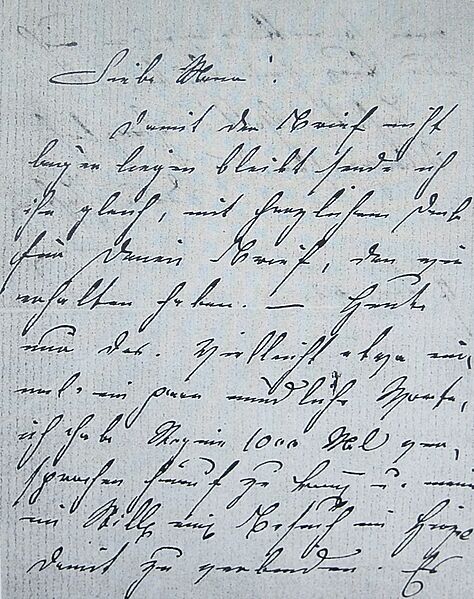 Liebe Mama!
Damit der Brief nicht
länger liegen bleibt sende ich
ihn gleich, mit herzlichem Dank
für Deinen Brief, den wir
erhalten haben. — Heute
nur das. Vielleicht etwa ein,
mal ein paar mündliche Worte,
ich habe 1000 Mal ver,
sprochen hinauf zu u.
im Besuch in
damit zu verbinden. Es